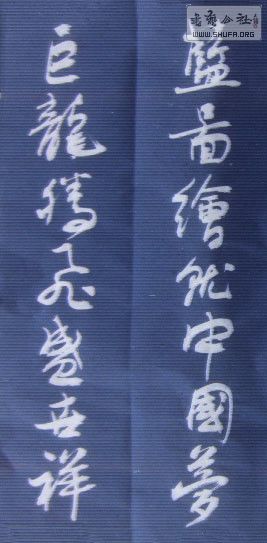 書法公社
WWW.SHUFA.ORG
藍啚繪就中國夢
巨龍騰飛盛世祥